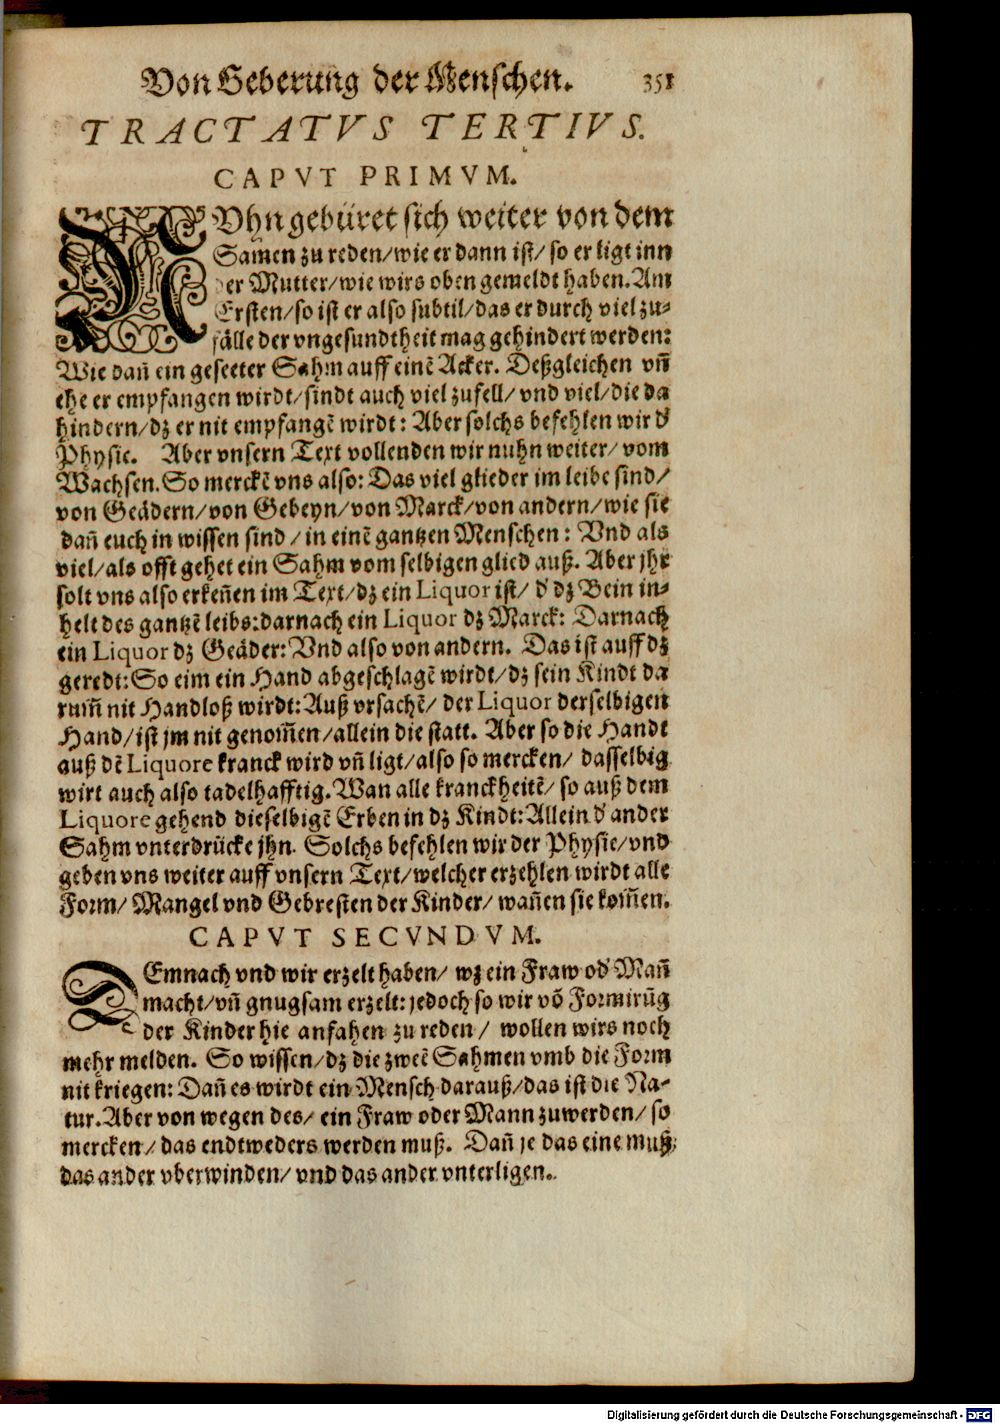 Von Geberung der Menschen. 351
TRACTATVS TERTIVS.
CAPVT PRIMVM.
NVhn gebüret sich weiter von dem
Samen zu reden/wie er dann ist/ so er ligt inn
der Mutter/wie wirs oben gemeldt haben. Am
Ersten/so ist er also subtil/das er durch viel zu-
fälle der vngesundtheit mag gehindert werden:
Wie dañ ein geseeter Sahm auff einẽ Acker. Deßgleichen vñ
ehe er empfangen wirdt/sindt auch viel zufell/ vnd viel/die da
hindern/dz er nit empfangẽ wirdt: Aber solchs befehlen wir d'
Physic. Aber vnsern Text vollenden wir nuhn weiter/ vom
Wachsen. So merckẽ vns also: Das viel glieder im leibe sind/
von Geädern/von Gebeyn/von Marck/von andern/wie sie
dañ euch in wissen sind / in einẽ gantzen Menschen: Vnd als
viel/als offt gehet ein Sahm vom selbigen glied auß. Aber jhr
solt vns also erkeñen im Text/dz ein Liquor ist/ d' dz Bein in-
helt des gantzẽ leibs:darnach ein Liquor dz Marck: Darnach
ein Liquor dz Geäder: Vnd also von andern. Das ist auff dz
geredt: So eim ein Hand abgeschlagẽ wirdt/dz sein Kindt da
rum̃ nit Handloß wirdt: Auß vrsachẽ/ der Liquor derselbigen
Hand/ist jm nit genom̃en/allein die statt. Aber so die Handt
auß dẽ Liquore kranck wird vñ ligt/also so mercken/ dasselbig
wirt auch also tadelhafftig. Wan alle kranckheitẽ/ so auß dem
Liquore gehend dieselbigẽ Erben in dz Kindt: Allein d' ander
Sahm vnterdrücke jhn. Solchs befehlen wir der Physic/vnd
geben vns weiter auff vnsern Text/welcher erzehlen wirdt alle
Form/ Mangel vnd Gebresten der Kinder/ wañen sie kom̃en.
CAPVT SECVNDVM.
DEmnach vnd wir erzelt haben/ wz ein Fraw od' Mañ
macht/vñ gnugsam erzelt: jedoch so wir võ Formirũg
der Kinder hie anfahen zu reden / wollen wirs noch
mehr melden. So wissen/dz die zweẽ Sahmen vmb die Form
nit kriegen: Dañ es wirdt ein Mensch darauß/das ist die Na-
tur. Aber von wegen des/ ein Fraw oder Mann zuwerden/ so
mercken/das endtweders werden muß. Dañ je das eine muß
das ander vberwinden/ vnd das ander vnterligen.
Digitalisierung gefördert durch die Deutsche Forschungsgemeinschaft - DFG